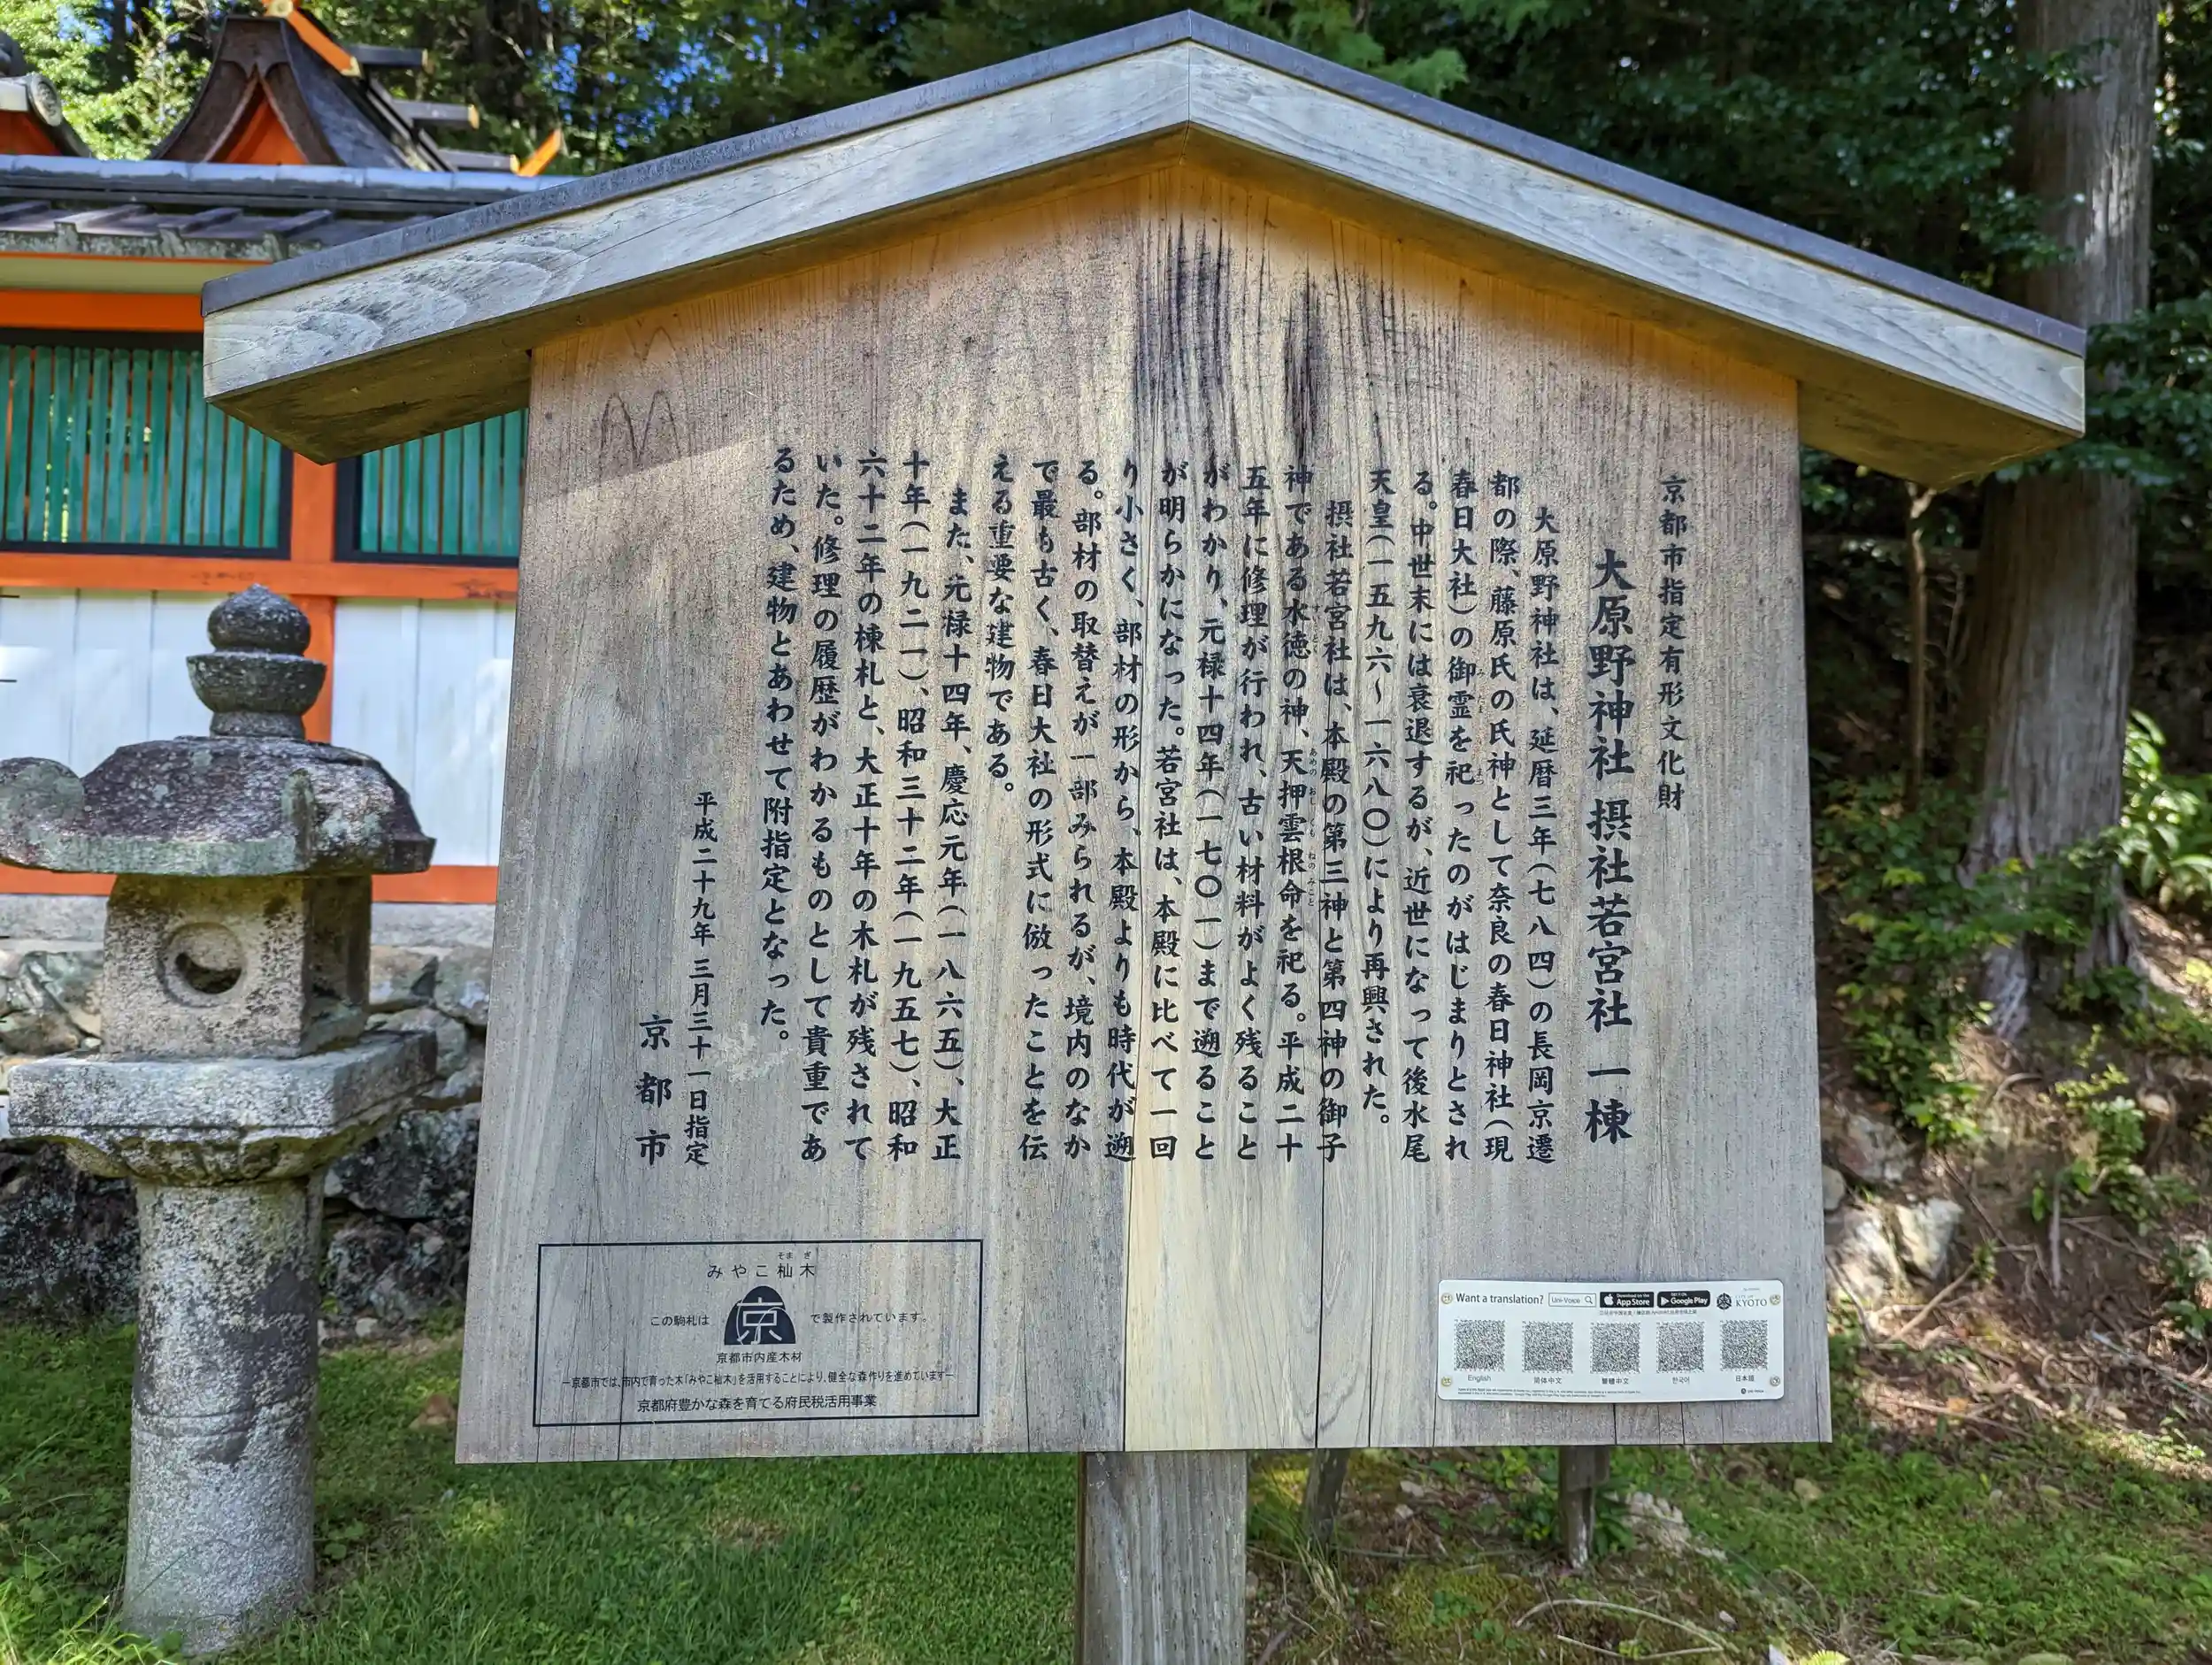 京都市指定有形文化財
大原野神社 摂社若宮社 一棟
大原野神社は、延暦三年(七八四)の長岡京遷
都の際、藤原氏の氏神として奈良の春日神社(現
春日大社)の御霊を祀ったのがはじまりとされ
る。中世末には衰退するが、近世になって後水尾
天皇(一五九六〜一六八〇)により再興された。
摂社若宮社は、本殿の第三神と第四神の御子
神である水徳の神、天押雲根命を祀る。平成二十
五年に修理が行われ、古い材料がよく残ること
がわかり、元禄十四年(一七〇一)まで遡ること
が明らかになった。若宮社は、本殿に比べて一回
り小さく、部材の形から、本殿よりも時代が遡
る。部材の取替えが一部みられるが、境内のなか
で最も古く、春日大社の形式に倣ったことを伝
える重要な建物である。
また、元禄十四年、慶応元年(一八六五)、大正
十年(一九二一)、昭和三十二年(一九五七)、昭和
六十二年の棟札と、大正十年の木札が残されて
いた。修理の履歴がわかるものとして貴重であ
るため、建物とあわせて附指定となった。
平成二十九年 三月三十一日指定
京都市
みやこ杣木
この駒札は 京 で製作されています。
京都市内産木材
―京都市では、市内で育った木「みやこ杣木」を活用することにより、健全な森作りを進めています―
京都府豊かな森を育てる府民税活用事業
Want a translation? Uni-Voice App Store Google Play KYOTO
English 简体中文 繁體中文 한국어 日本語